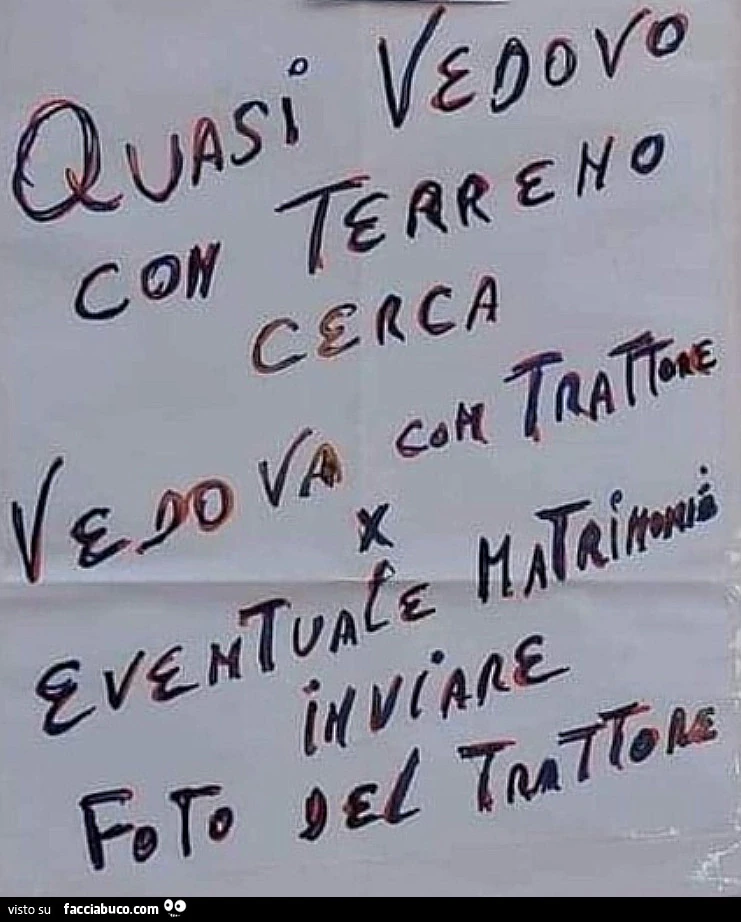 QUASi VEDOVO
CON TERRENO
CERCA
VEDOVA CON TRATTORE
X
EVENTUALE MATRiMONiO
iNViARE
FOTO DEL TRATTORE
visto su facciabuco.com